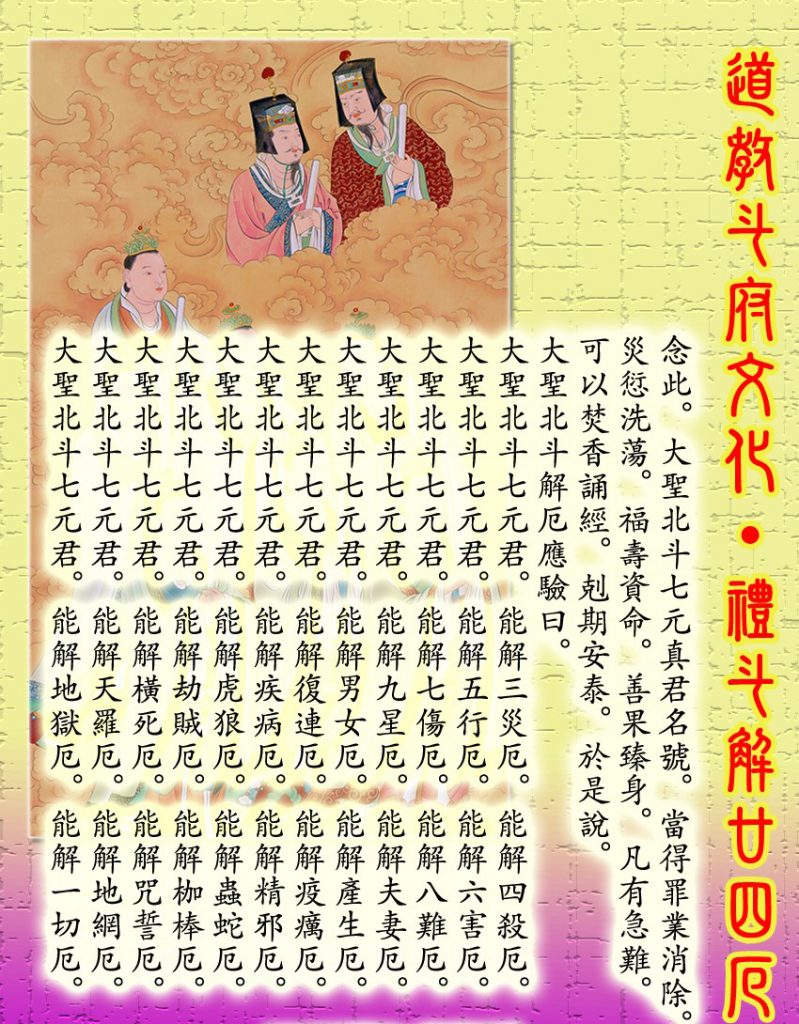 道教斗府文化・禮斗解廿四厄
念此。大聖北斗七元真君名號。當得罪業消除。
災愆洗蕩。福壽資命。善果臻身。凡有急難。
可以焚香誦經。剋期安泰。於是說。
大聖北斗解厄應驗曰。
大聖北斗七元君。能解三災厄。能解四殺厄。
大聖北斗七元君。能解五行厄。能解六害厄。
大聖北斗七元君。能解七傷厄。能解八難厄。
大聖北斗七元君。能解九星厄。能解夫妻厄。
大聖北斗七元君。能解男女厄。能解產生厄。
大聖北斗七元君。能解復連厄。能解疫癘厄。
大聖北斗七元君。能解疾病厄。能解精邪厄。
大聖北斗七元君。能解虎狼厄。能解蟲蛇厄。
大聖北斗七元君。能解劫賊厄。能解枷棒厄。
大聖北斗七元君。能解橫死厄。能解咒誓厄。
大聖北斗七元君。能解天羅厄。能解地網厄。
大聖北斗七元君。能解地獄厄。能解一切厄。